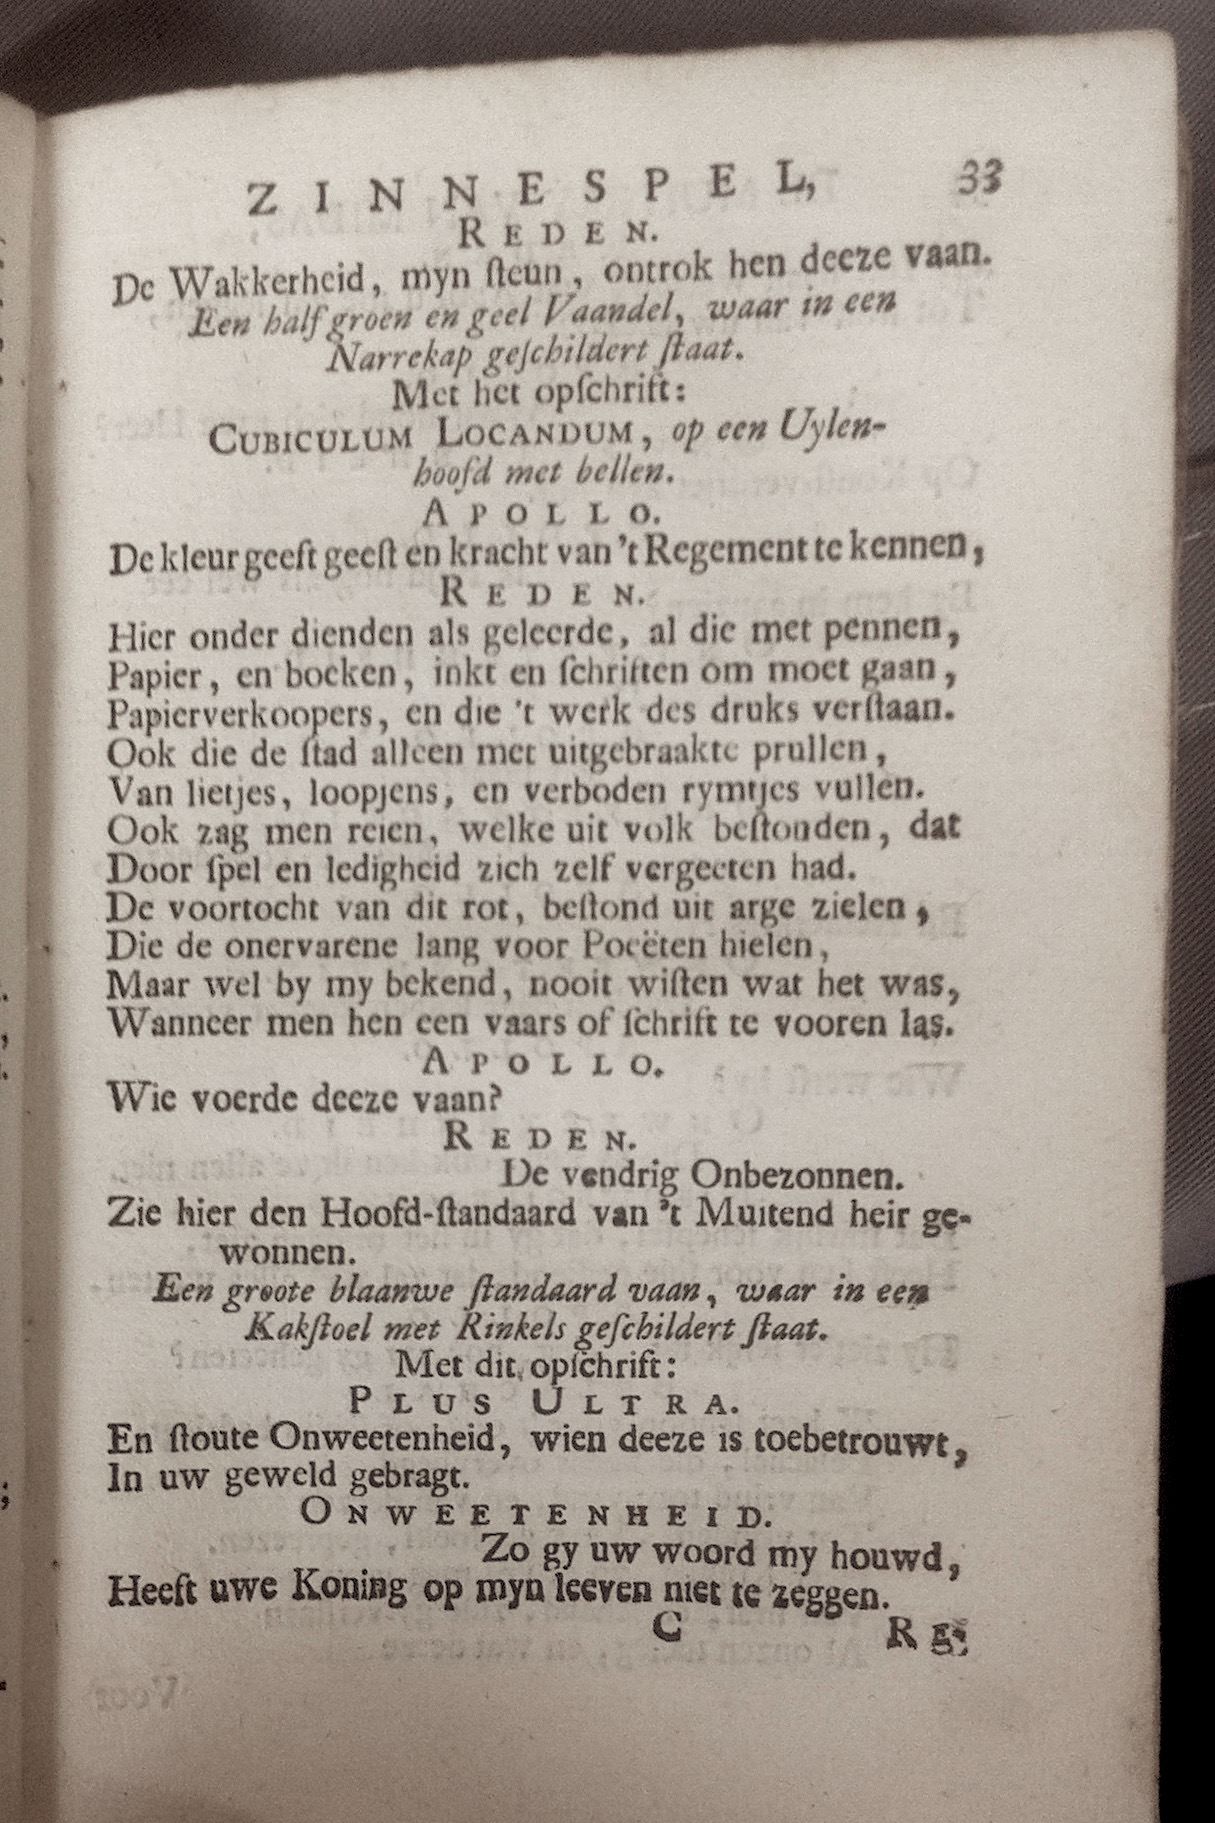 ZINNESPEL, 33
REDEN.
De Wakkerheid, myn ſteun, ontrok hen deeze vaan.
Een half groen en geel Vaandel, waar in een
Narrekap geſchildert ſtaat.
Met het opſchrift:
CUBICULUM LOCANDUM, op een Uylen-
hoofd met bellen.
APOLLO.
De kleur geeft geeſt en kracht van 't Regement te kennen,
REDEN.
Hier onder dienden als geleerde, al die met pennen,
Papier, en boeken, inkt en ſchriften om moet gaan,
Papierverkoopers, en die 't werk des druks verſtaan.
Ook die de ſtad alleen met uitgebraakte prullen,
Van lietjes, loopjens, en verboden rymtjes vullen.
Ook zag men reien, welke uit volk beſtonden, dat
Door ſpel en ledigheid zich zelf vergeeten had.
De voortocht van dit rot, beſtond uit arge zielen,
Die de onervarene lang voor Poëeten hielen,
Maar wel by my bekend, nooit wiſten wat het was,
Wanneer men hen een vaars of ſchrift te vooren las.
APOLLO.
Wie voerde deeze vaan?
REDEN.
De vendrig Onbezonnen.
Zie hier den Hoofd-ſtandaard van 't Muitend heir ge-
wonnen.
Een groote blaanwe ſtandaard vaan, waar in een
Kakſtoel met Rinkels geſchildert ſtaat.
Met dit opſchrift:
PLUS ULTRA.
En ſtoute Onweetenheid, wien deeze is toebetrouwt,
In uw geweld gebragt.
ONWEETENHEID.
Zo gy uw woord my houwd,
Heeft uwe Koning op myn leeven niet te zeggen.
C R